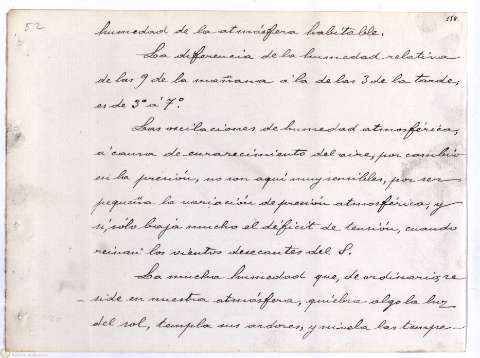 52
158
humedad de la atmósfera habitable.
La diferencia de la humedad relativa
de las 9 de la mañana á la de las 3 de la tarde,
es de 3º á 7º.
Las oscilaciones de humedad atmosférica,
á causa de enrarecimiento del aire, por cambio
en la presión, no son aquí muy sensibles, por ser
pequeña la variación de presión atmosférica, y
sí, sólo baja mucho el déficit de tensión, cuando
reinan los vientos desecantes del S.
La mucha humedad que, de ordinario, re
side en nuestra atmósfera, quiebra algo la luz
del sol, templa sus ardores, y nivela las tempe-